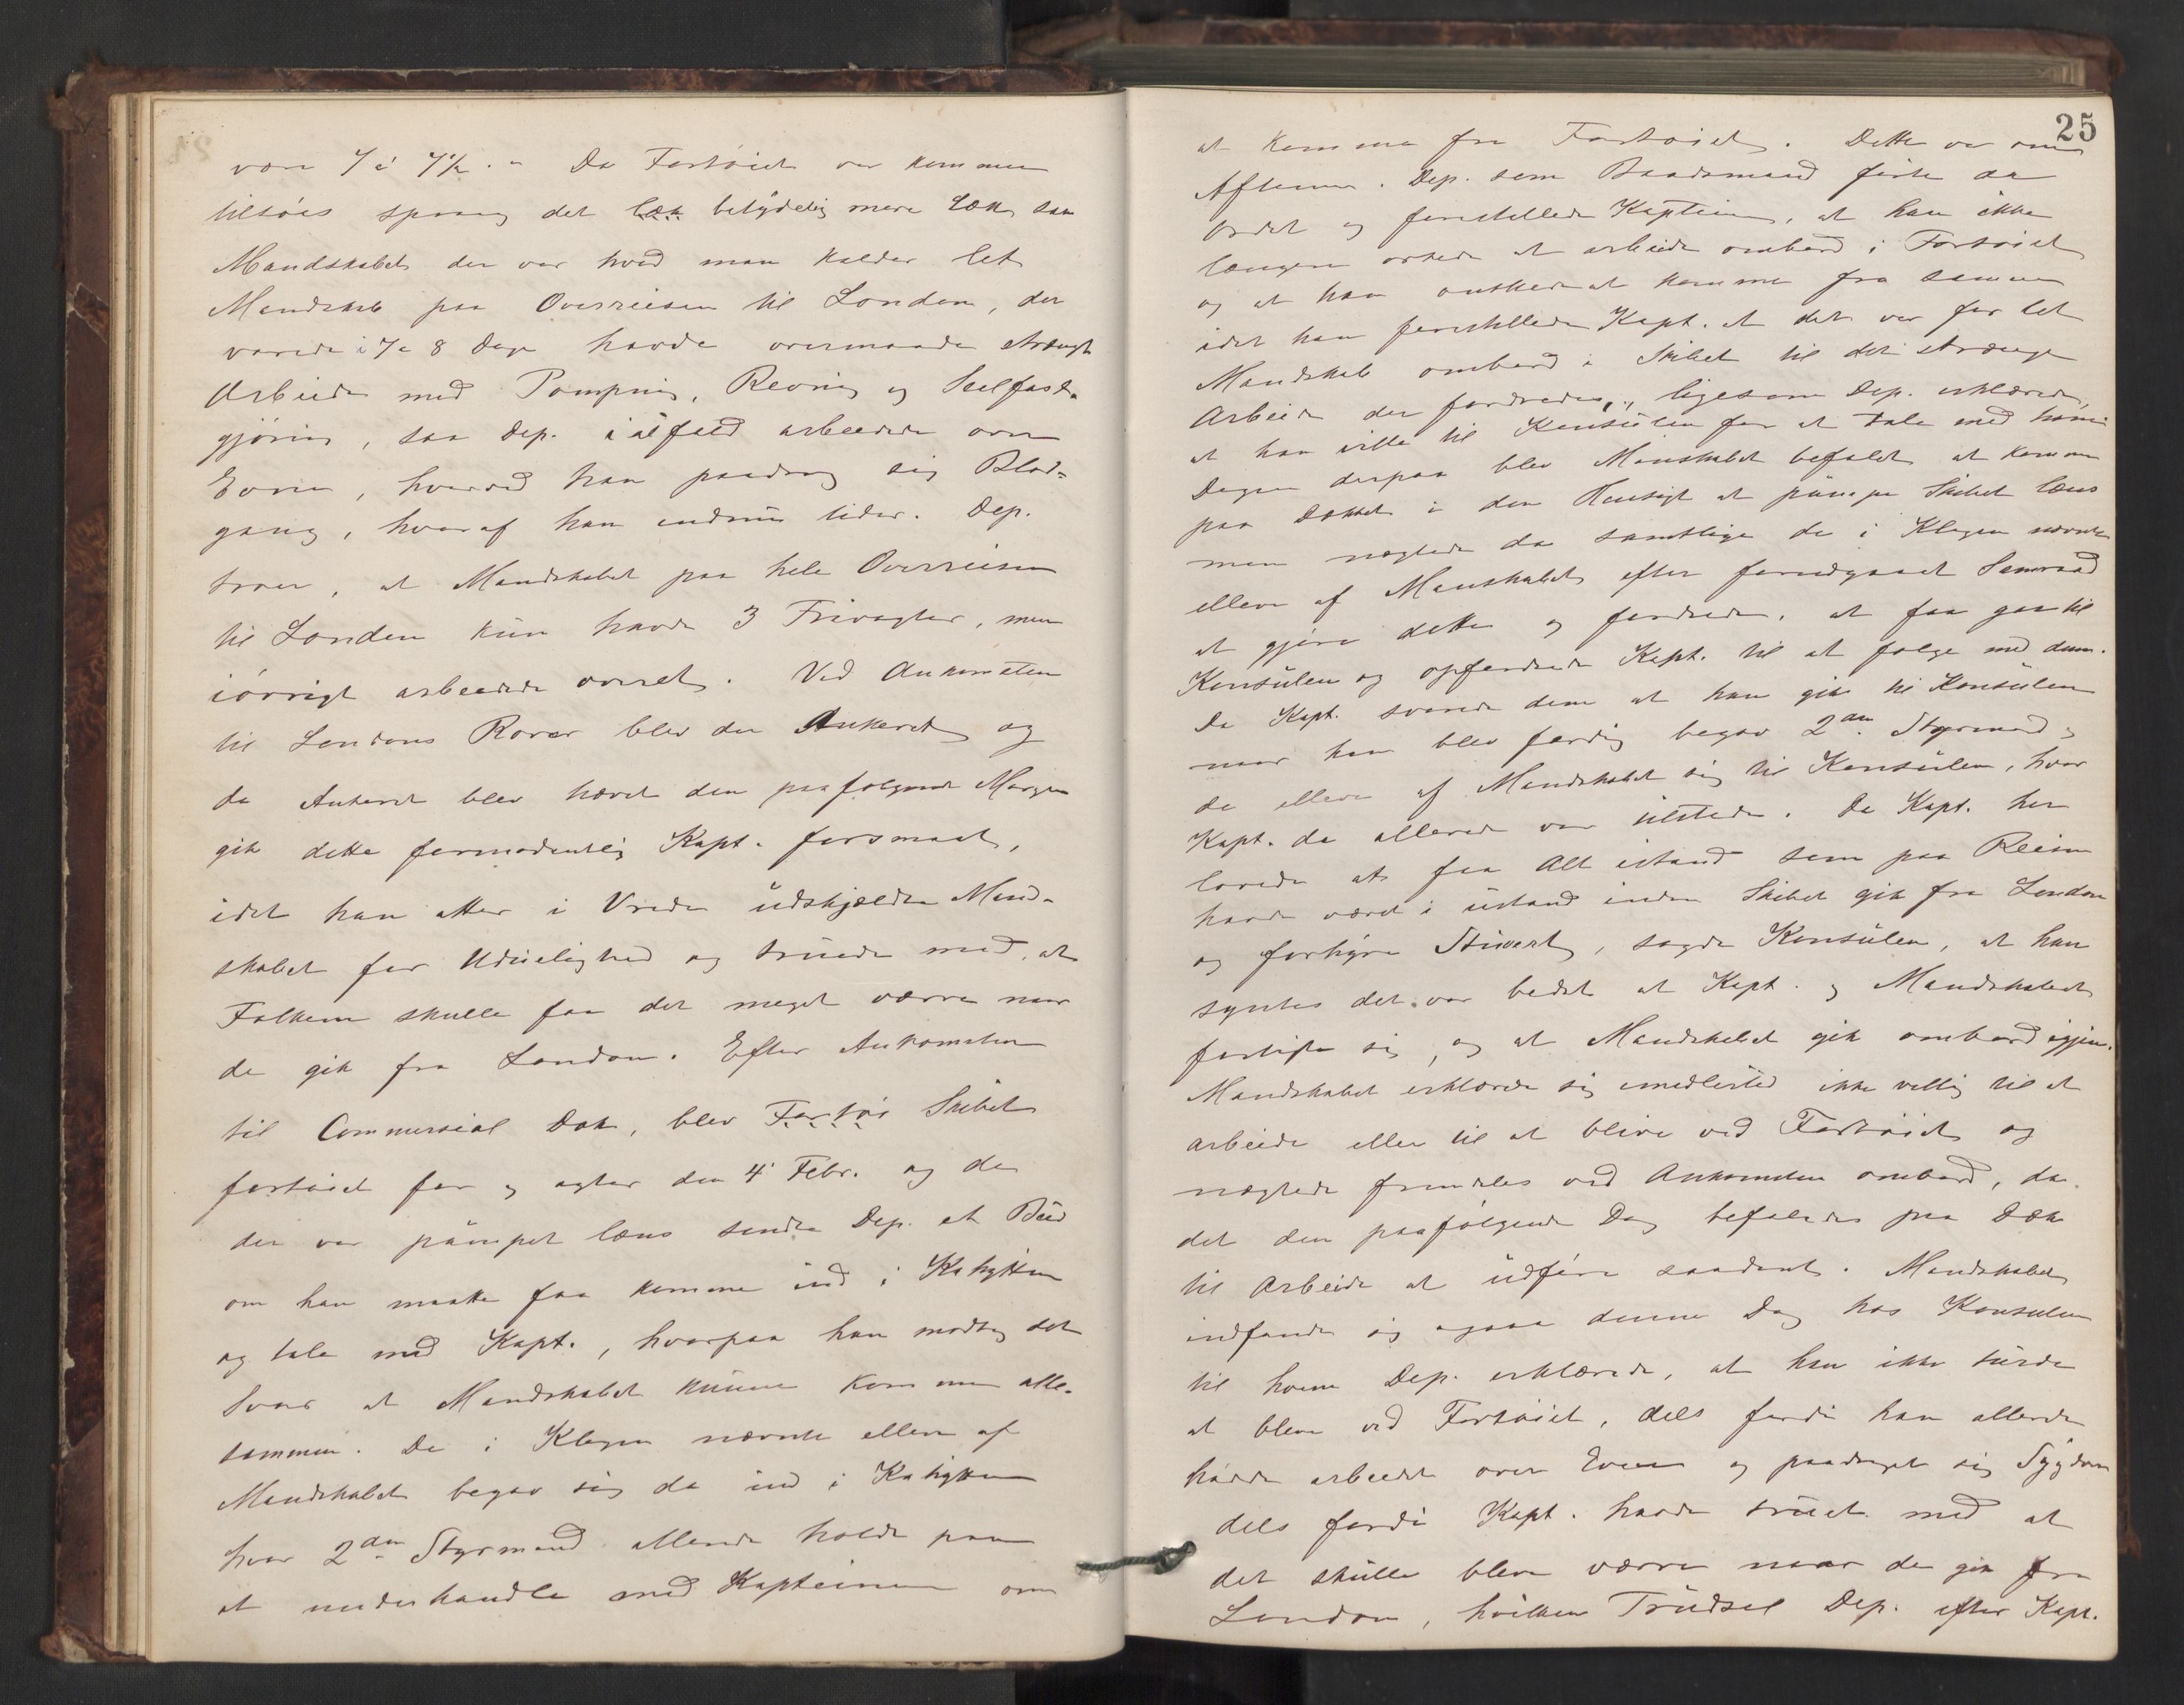 være 7 à 7½. " Da Fartøiet var kommen
tilsøes sprang det læk betydelig mere Læk saa
Mandskabet der var hvad man kalder let
Mandskab paa Overreisen til London, der
varede i 7 a 8 Dage havde overmaade strængt
Arbeide med Pompning, Revning og Seilfast-
gjøring, saa Dep. ialfald arbeidede over
Evne, hvorved han paadrog sig Blod-
gang, hvoraf han endnu lider. Dep.
troer, at Mandskabet paa hele Overreisen
til London kun havde 3 Frivagter, men
iøvrigt arbeidede overalt. Ved Ankomsten
til Londons Rever blev der Ankeret og
da Ankeret blev hævet den paafølgende Morgen
gik dette formodentlig Kapt. forsmaat,
idet han atter i Vrede udskjældte Mand-
skabet for Uduelighed og truede med, at
Folkene skulle faa det meget værre naar
de gik fra London. Efter Ankomsten
til Commersial Dok, blev Fartøi Skibet
fortøiet for og agter den 4' Febr. og da
der var pumpet læns sendte Dep. et Bud
om han maatte faa komme ind i Kahytten
og tale med Kapt., hvorpaa han modtog det
Svar at Mandskabet kunne komme alle-
sammen. De i Klagen nævnte ellve af
Mandskabet begav sig da ind i Kahytten
hvor 2den Styrmand allerede holdt paa
at underhandle med Kapteinen om
25
at komme fra Fartøiet. Dette var om
Aftenen. Dep. som Baadsmand førte da
Ordet og forestillede Kaptein, at han ikke
længere orkede at arbeide ombord i Fartøiet
og at han ønskede at komme fra samme
idet han forestillede Kapt. at det var for let
Mandskab ombord i Skibet til det strænge
Arbeide der fordredes, ligesom Dep. erklærede,
at han vilde til Konsulen for at tale med ham
Dagen derpaa blev Manskabet befalet at komme
paa Dækket i den Hensigt at pumpe Skibet læns
men nægtede da samtlige de i Klagen nævnte
elleve af Manskabet efter forudgaaet Samraad
at gjøre dette og fordrede, at faa gaa til
Konsulen og opfordrede Kapt. til at følge med dem.
Da Kapt. svarede dem at han gik til Konsulen
naar han blev færdig begav 2den Styrmand og
de elleve af Mandskabet sig til Konsulen, hvor
Kapt. da allerede var tilstede. Da Kapt. her
lovede at faa Alt istand som paa Reisen
havde været i ustand inden Skibet gik fra London
og forhyre Stuvert, sagde Konsulen, at han
syntes det var bedst at Kapt. og Mandskabet
forligte sig, og at Mandskabet gik ombord igjen.
Mandskabet erklærede sig imidlertid ikke villig til at
arbeide eller til at blive ved Fartøiet og
nægtede fremdeles ved Ankomsten ombord, da
det den paafølgende Dag befaledes paa Dæk
til Arbeide at udføre saadant. Mandskabet
indfandt sig ogsaa denne Dag hos Konsulen
til hvem Dep. erklærede, at han ikke turde
at blive ved Fartøiet, dels fordi han allerede
havde arbeidet over Evne og paadraget sig Sygdom
dels fordi Kapt. havde truet med at
det skulle blive værre naar de gik fra
London, hvilken Trudsel Dep. efter Kapt.